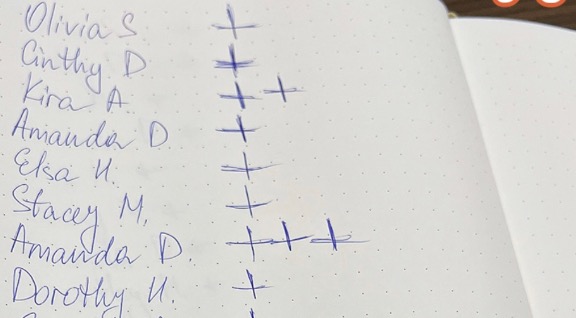 Olivia S +
Cinthy D +
Kira A + +
Amanda D. +
Elsa H. +
Stacey M, +
Amanda D. + + +
Dorothy H. +